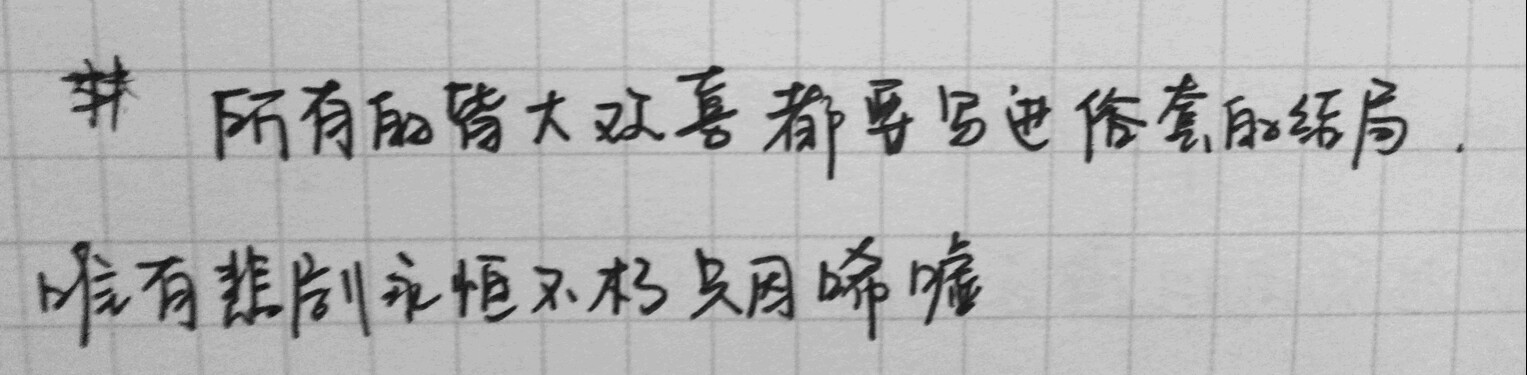 # 所有的皆大欢喜都要写进俗套的结局.
唯有悲剧永恒不朽只因唏嘘